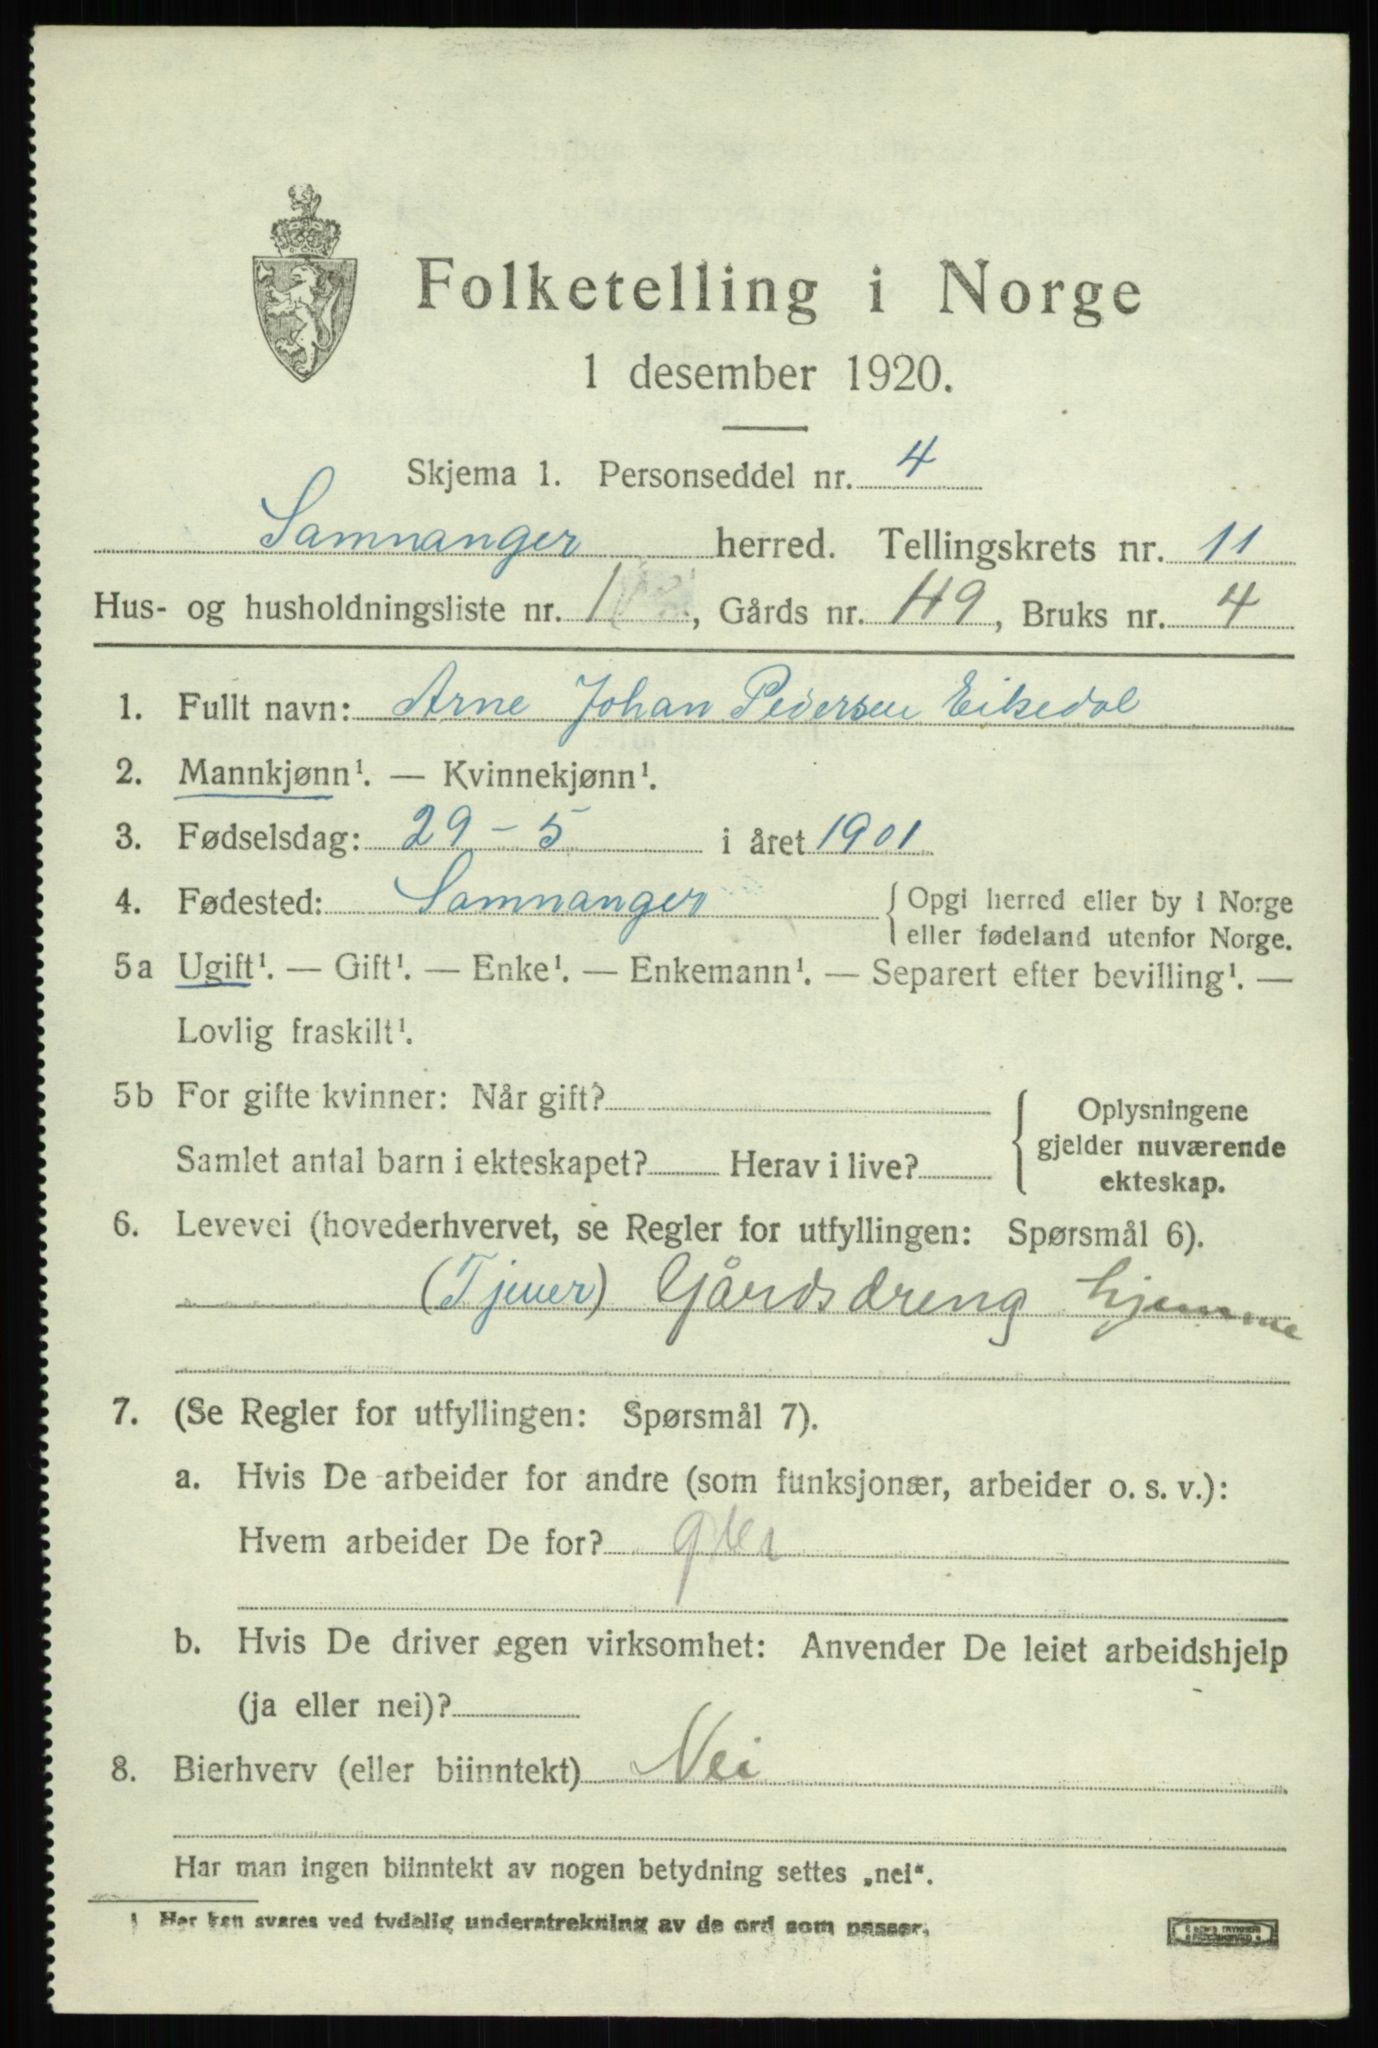 Folketelling i Norge
1 desember 1920.
Skjema 1. Personseddel nr. 4
Samnanger herred. Tellingskrets nr. 11
Hus- og husholdningsliste nr. 1, Gårds nr. 49, Bruks nr. 4
1. Fullt navn: Arne Johan Pedersen Eikedal
2. Mannkjønn¹. — Kvinnekjønn¹.
3. Fødselsdag: 29 - 5 i året 1901
4. Fødested: Samnanger { Opgi herred eller by i Norge
eller fødeland utenfor Norge.
5a Ugift¹. — Gift¹. — Enke¹. — Enkemann¹. — Separert efter bevilling¹. —
Lovlig fraskilt¹.
5b For gifte kvinner: Når gift?
Samlet antal barn i ekteskapet? Herav i live?
{ Oplysningene
gjelder nuværende
ekteskap.
6. Levevei (hovederhvervet, se Regler for utfyllingen: Spørsmål 6).
(Tjener) Gårdsdreng hjemme
7. (Se Regler for utfyllingen: Spørsmål 7).
a. Hvis De arbeider for andre (som funksjonær, arbeider o. s. v.):
Hvem arbeider De for?
b. Hvis De driver egen virksomhet: Anvender De leiet arbeidshjelp
(ja eller nei)?
8. Bierhverv (eller biinntekt) Nei
Har man ingen biinntekt av nogen betydning settes „nei“.
¹ Her kan svares ved tydelig understrekning av de ord som passer.